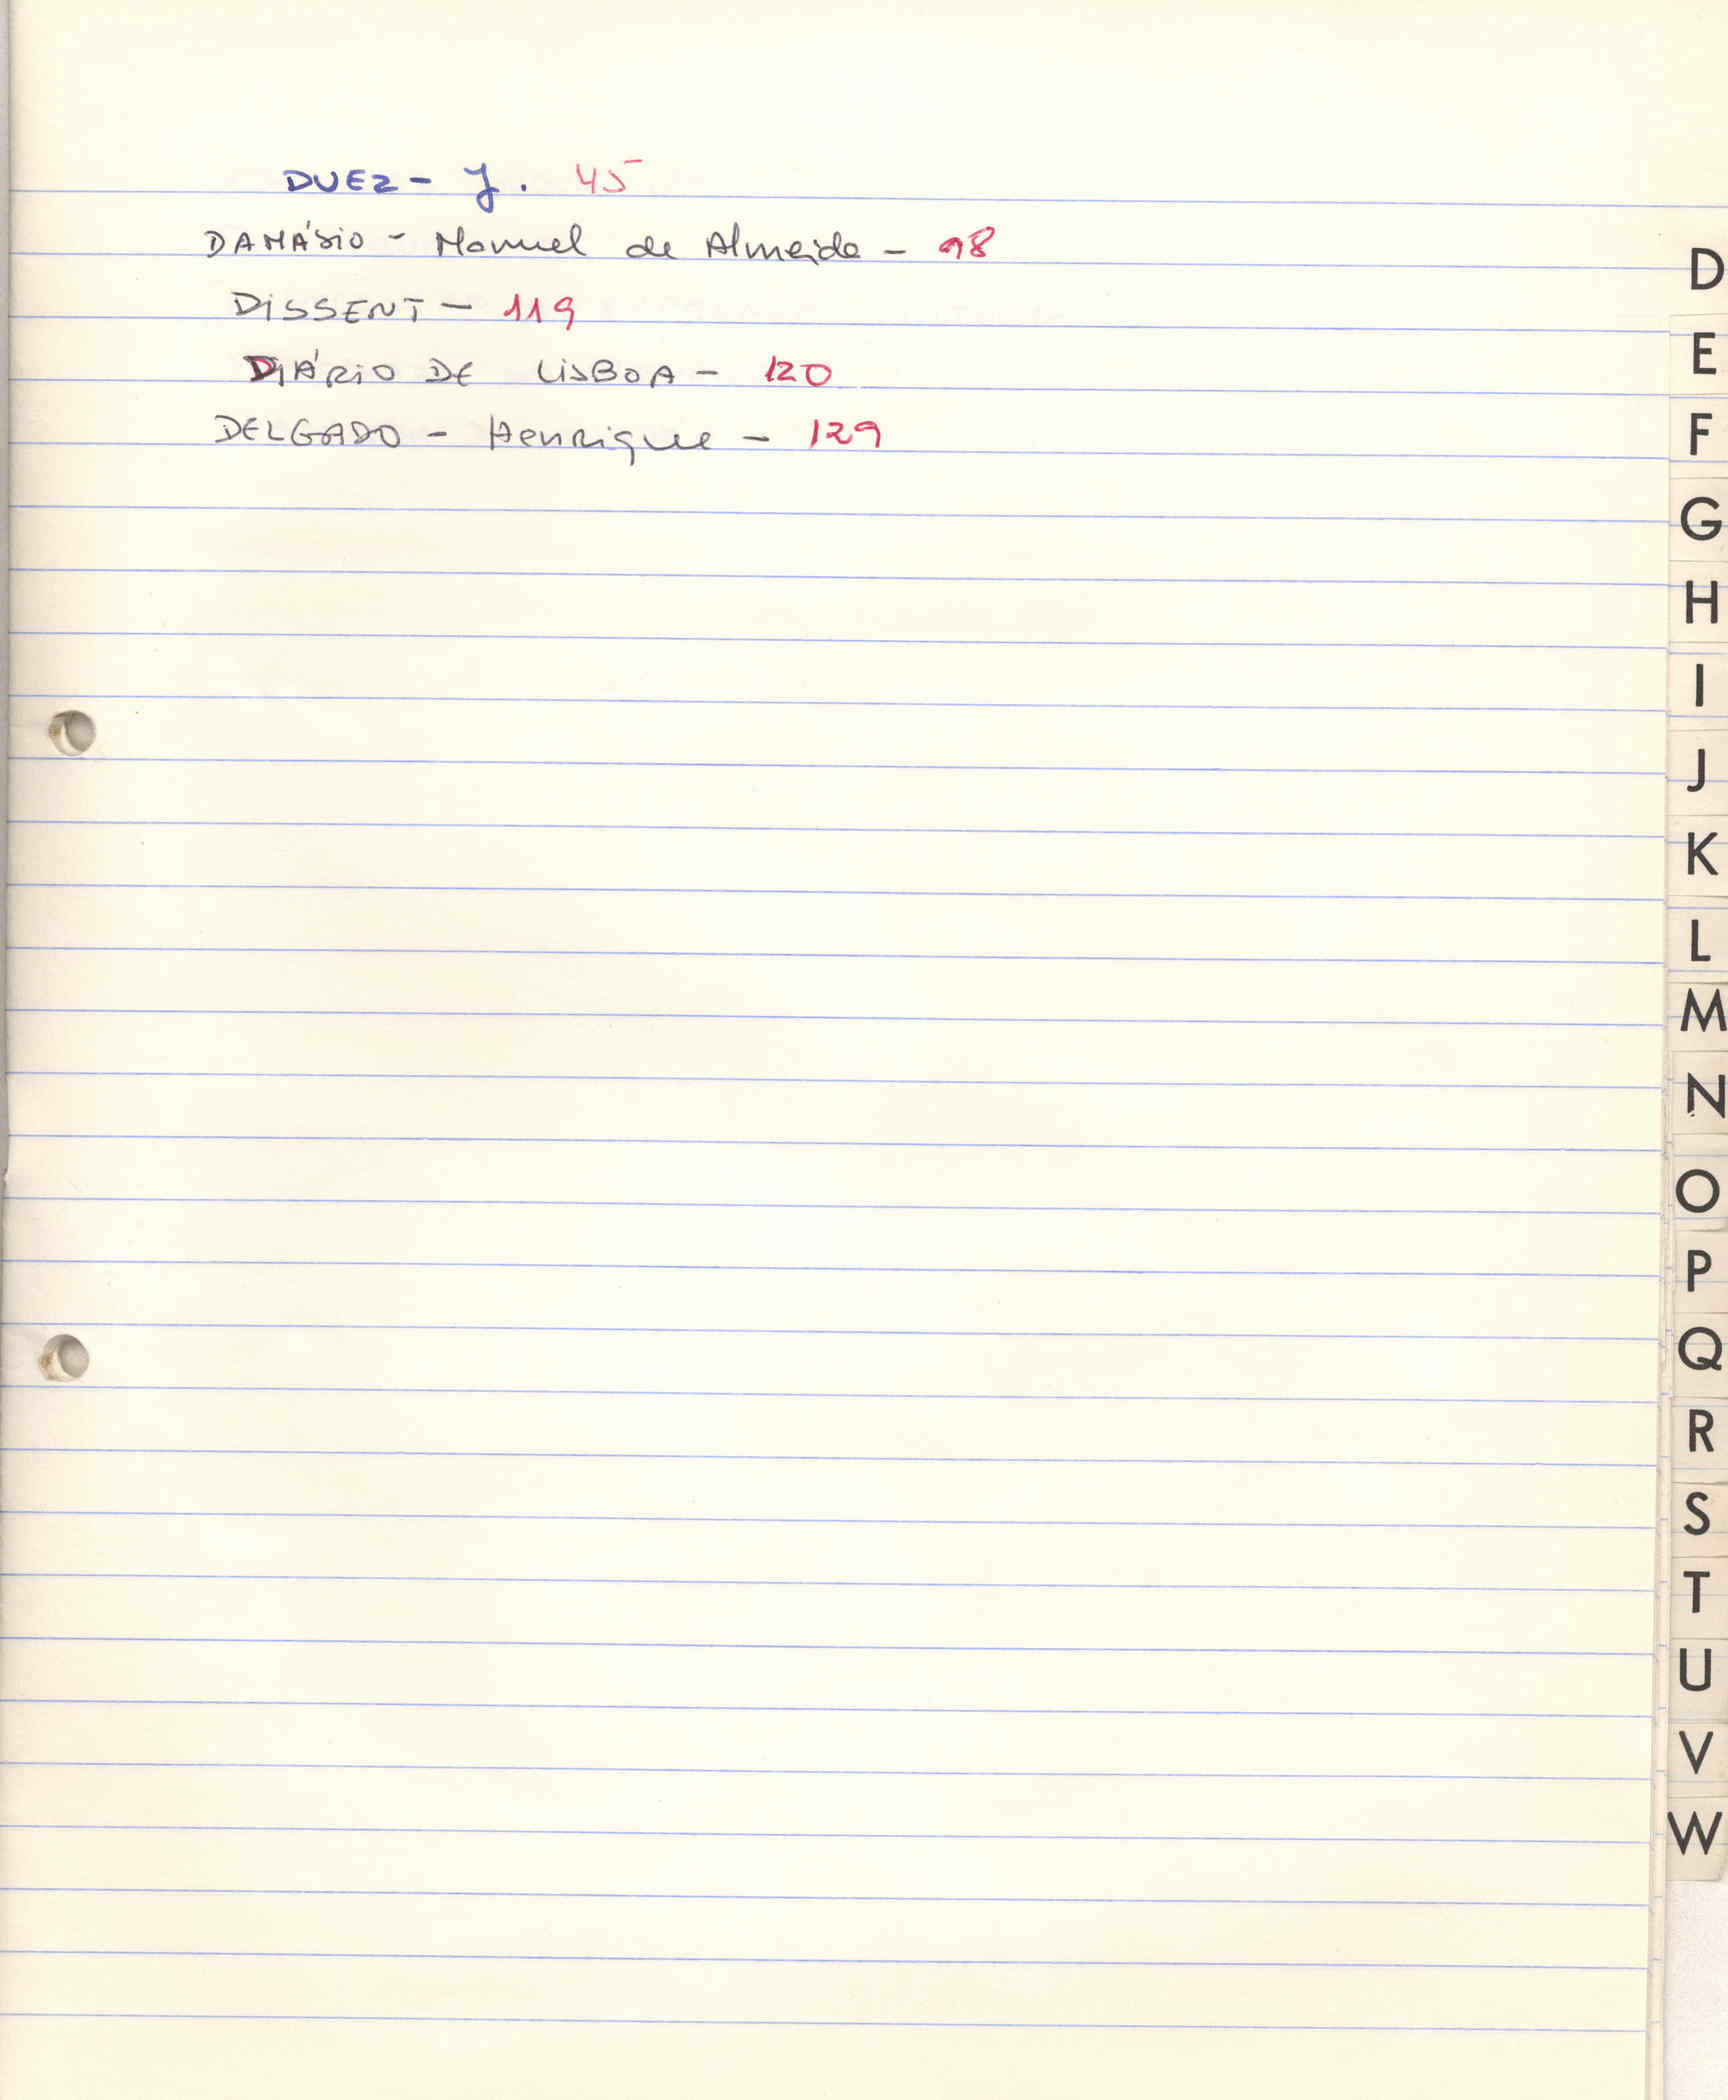 DUEZ - J. 45
DAMÁSIO - Manuel de Almeida - 98
DISSENT - 119
DIÁRIO DE LISBOA - 120
DELGADO - Henrique - 129
D
E
F
G
H
I
J
K
L
M
N
O
P
Q
R
S
T
U
V
W